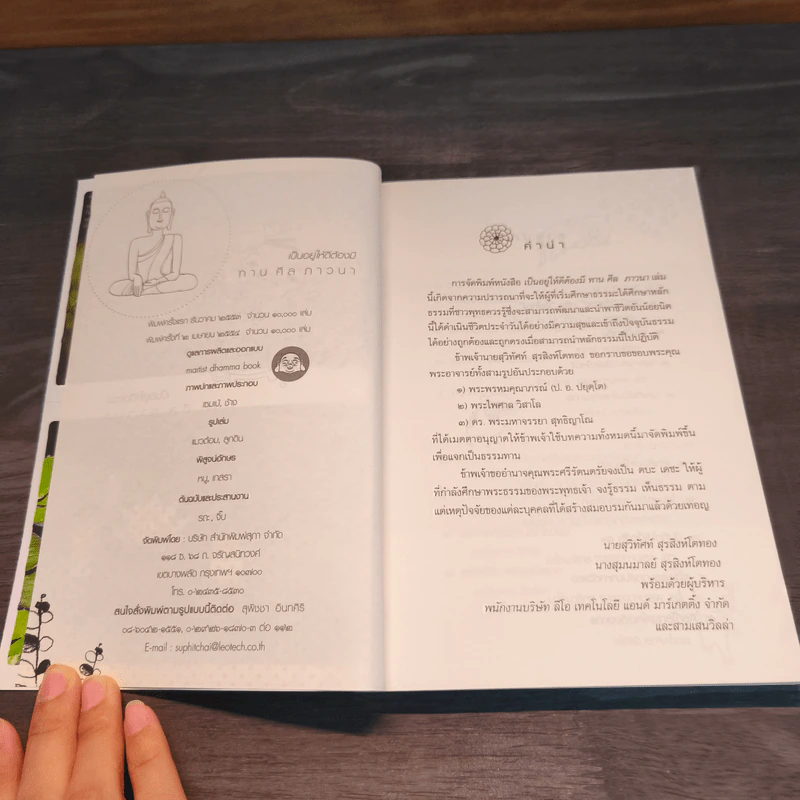 เป็นอยู่ให้ดีต้องมี
ทาน ศีล ภาวนา
พิมพ์ครั้งแรก ธันวาคม ๒๕๕๓ จำนวน ๑๐,๐๐๐ เล่ม
พิมพ์ครั้งที่ ๒ เมษายน ๒๕๕๔ จำนวน ๑๐,๐๐๐ เล่ม
ดูแลการผลิตและออกแบบ
martist dhamma book
ภาพปกและภาพประกอบ
เซมเบ้, ช้าง
รูปเล่ม
แมวต้อม, ลูกดิน
พิสูจน์อักษร
หนู, เกสรา
ต้นฉบับและประสานงาน
รณะ, จิ๊บ
จัดพิมพ์โดย : บริษัท สำนักพิมพ์สุภา จำกัด
๑๑๘ ซ. ๖๘ ถ. จรัญสนิทวงศ์
เขตบางพลัด กรุงเทพฯ ๑๐๗๐๐
โทร. ๐-๒๔๓๕-๘๕๓๐
สนใจสั่งพิมพ์ตามรูปแบบนี้ติดต่อ สุพิชชา อินทศิริ
๐๘-๖๐๔๒-๑๕๕๑, ๐-๒๙๓๒-๑๘๗๐-๓ ต่อ ๑๑๒
E-mail : suphitcha@leotech.co.th
คำนำ
การจัดพิมพ์หนังสือ เป็นอยู่ให้ดีต้องมี ทาน ศีล ภาวนา เล่ม
นี้เกิดจากความปรารถนาที่จะให้ผู้ที่เริ่มศึกษาธรรมะได้ศึกษาหลัก
ธรรมที่ชาวพุทธควรรู้ซึ่งจะสามารถพัฒนาและนำพาชีวิตอันน้อยนิด
นี้ได้ดำเนินชีวิตประจำวันได้อย่างมีความสุขและเข้าถึงปัจจุบันธรรม
ได้อย่างถูกต้องและถูกตรงเมื่อสามารถนำหลักธรรมนี้ไปปฏิบัติ
ข้าพเจ้านายสุวิทัศท์ สุรสิงห์โตทอง ขอกราบขอขอบพระคุณ
พระอาจารย์ทั้งสามรูปอันประกอบด้วย
๑) พระพรหมคุณาภรณ์ (ป. อ. ปยุตฺโต)
๒) พระไพศาล วิสาโล
๓) ดร. พระมหาจรรยา สุทธิญาโณ
ที่ได้เมตตาอนุญาตให้ข้าพเจ้าใช้บทความทั้งหมดนี้มาจัดพิมพ์ขึ้น
เพื่อแจกเป็นธรรมทาน
ข้าพเจ้าขออำนาจคุณพระศรีรัตนตรัยจงเป็น ตบะ เดชะ ให้ผู้
ที่กำลังศึกษาพระธรรมของพระพุทธเจ้า จงรู้ธรรม เห็นธรรม ตาม
แต่เหตุปัจจัยของแต่ละบุคคลที่ได้สร้างสมอบรมกันมาแล้วด้วยเทอญ
นายสุวิทัศท์ สุรสิงห์โตทอง
นางสุมนมาลย์ สุรสิงห์โตทอง
พร้อมด้วยผู้บริหาร
พนักงานบริษัท ลีโอ เทคโนโลยี แอนด์ มาร์เกตติ้ง จำกัด
และสามเสนวิลล่า